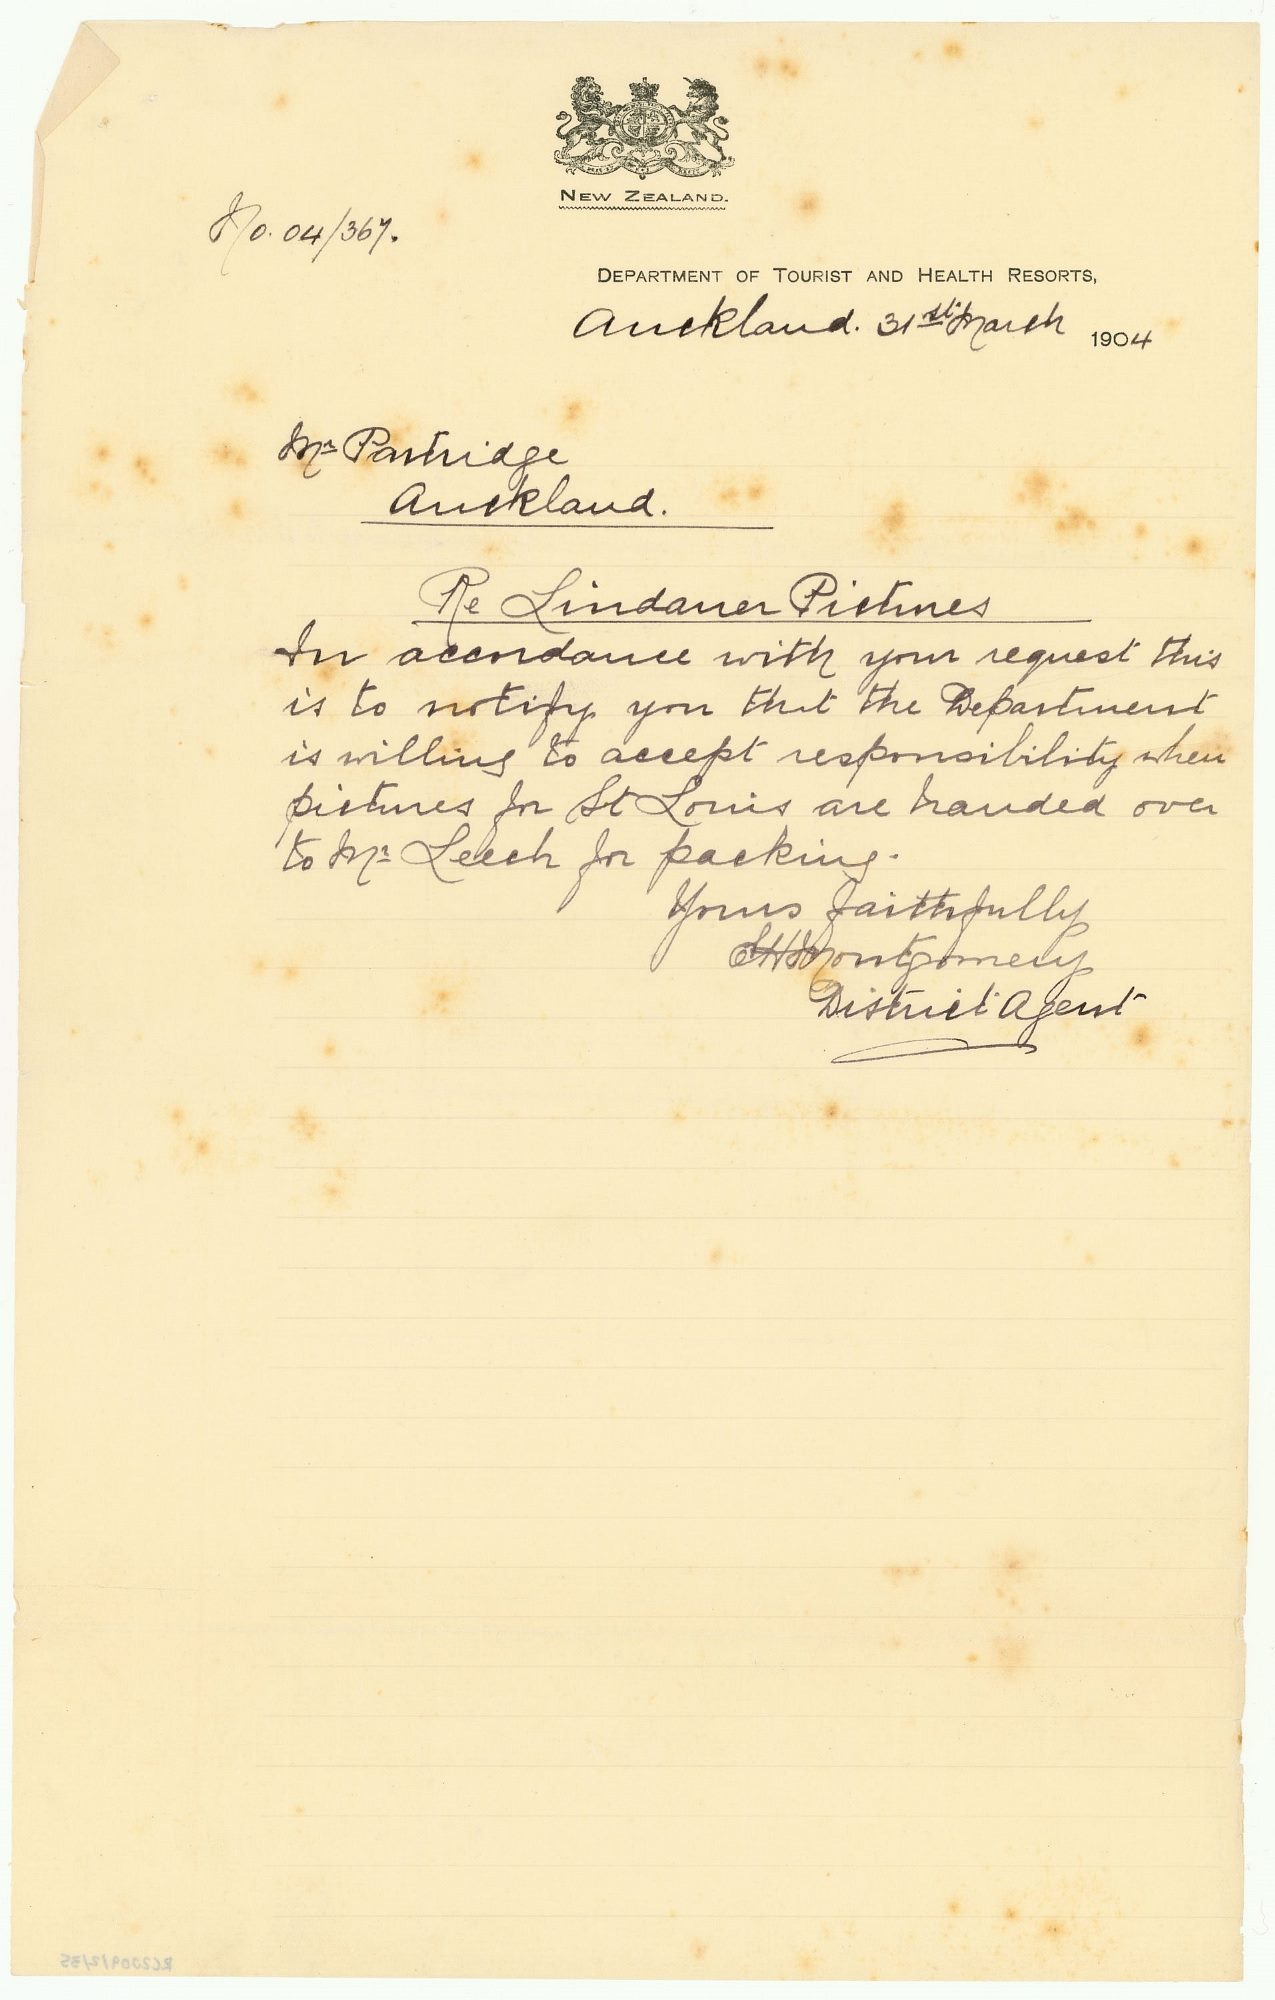 NEW ZEALAND.
No. 04/367.
DEPARTMENT OF TOURIST AND HEALTH RESORTS,
Auckland. 31st March 1904
Mr Partridge
Auckland.
Re Lindauer Pictures
In accordance with your request this
is to notify you that the Department
is willing to accept responsibility when
pictures for St Louis are handed over
to Mr Leech for packing.
Yours faithfully
Montgomery
District Agent
RC2009/2/35